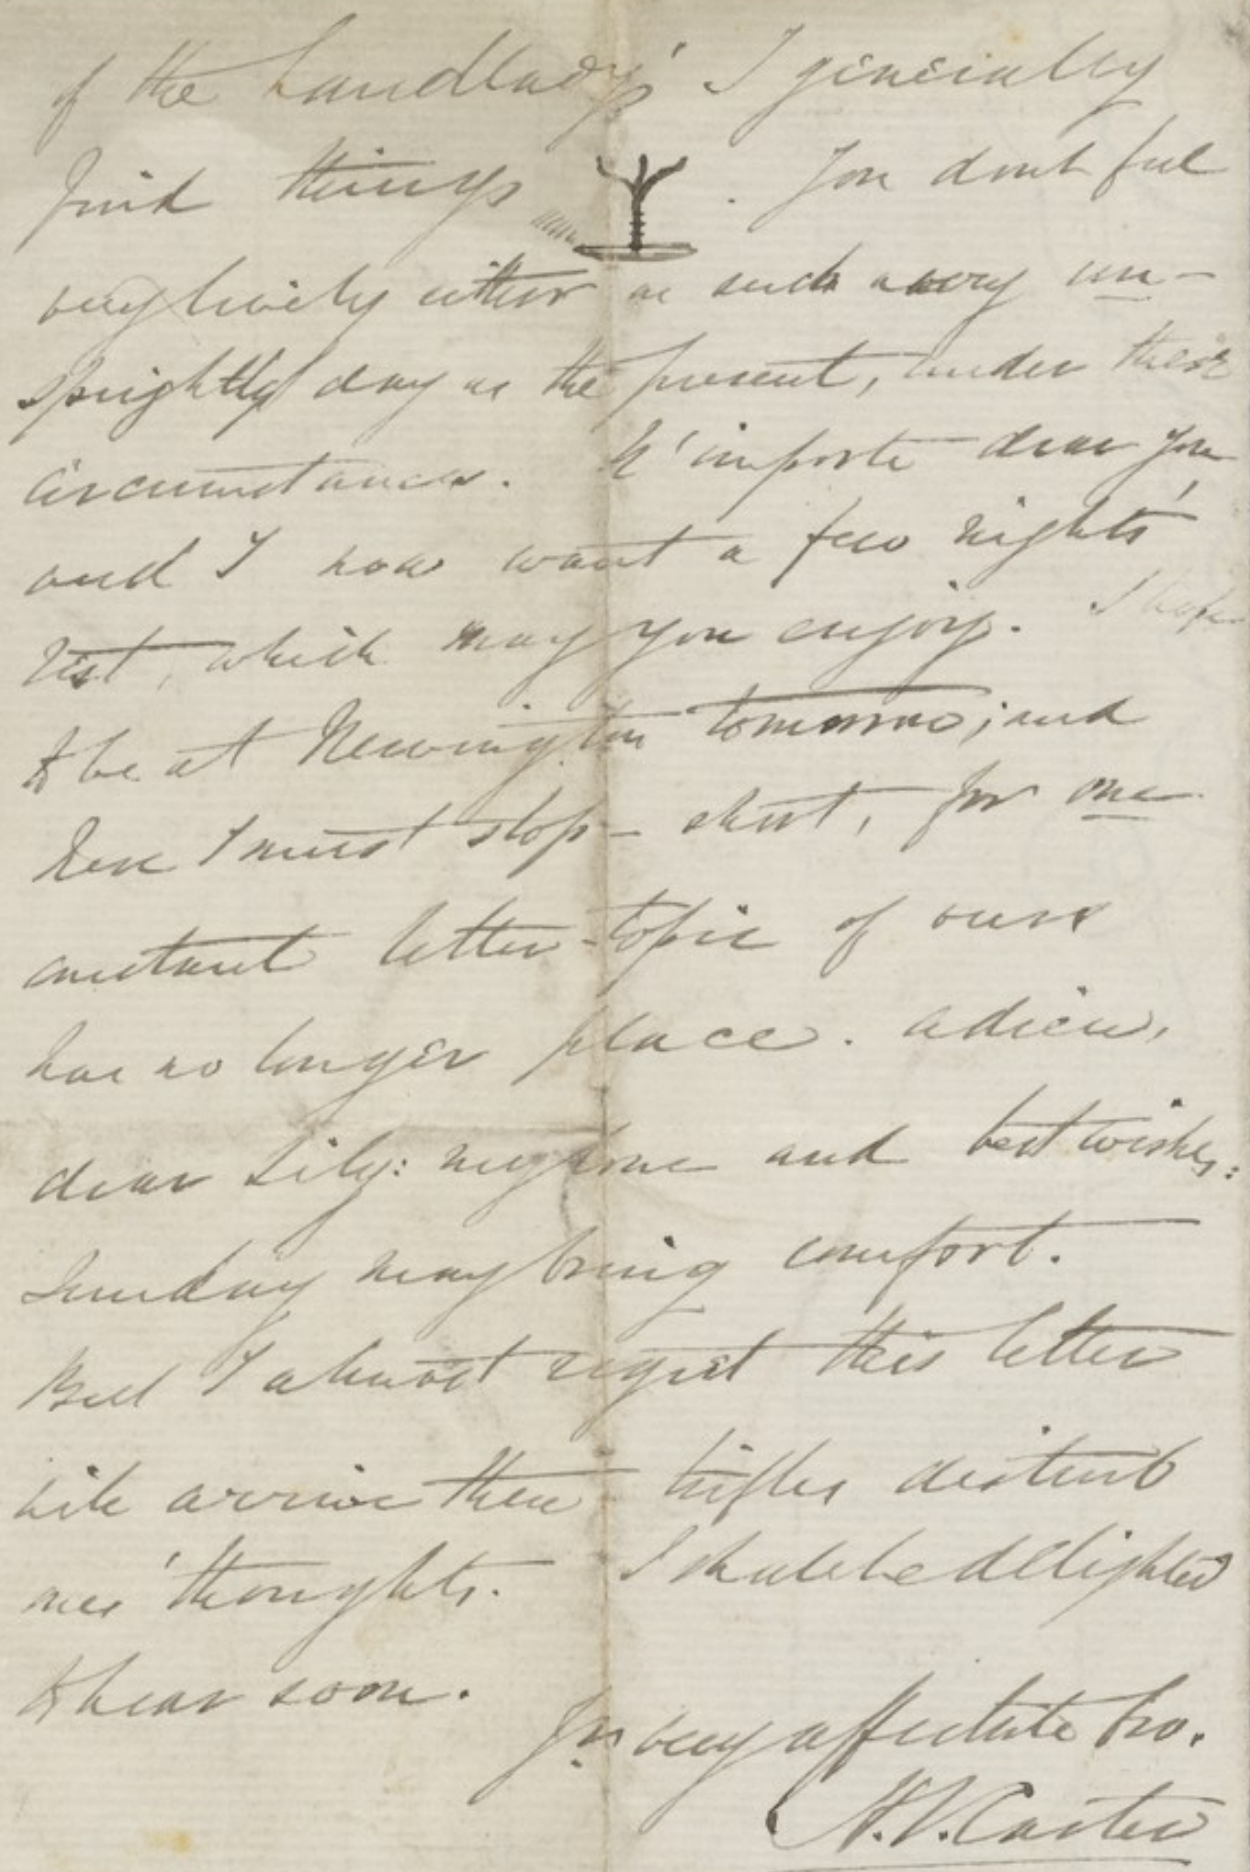 of the Landlady's' I generally
find things . You dont feel
very lively either on such a very un-
sprightly day as the present, under these
circumstances. N'importe dear you,
and I now want a few nights'
rest, which may you enjoy. I hope
to be at Newington tomorrow; and
here I must stop - short, for one
constant letter-topic of ours
has no longer place. adieu,
dear Lily: my love and best wishes:
Sunday may bring comfort.
But I almost regret this letter
will arrive then trifles disturb
one's thoughts. I shall be delighted
to hear soon.
Yr. very affectate bro.
H.V. Carter